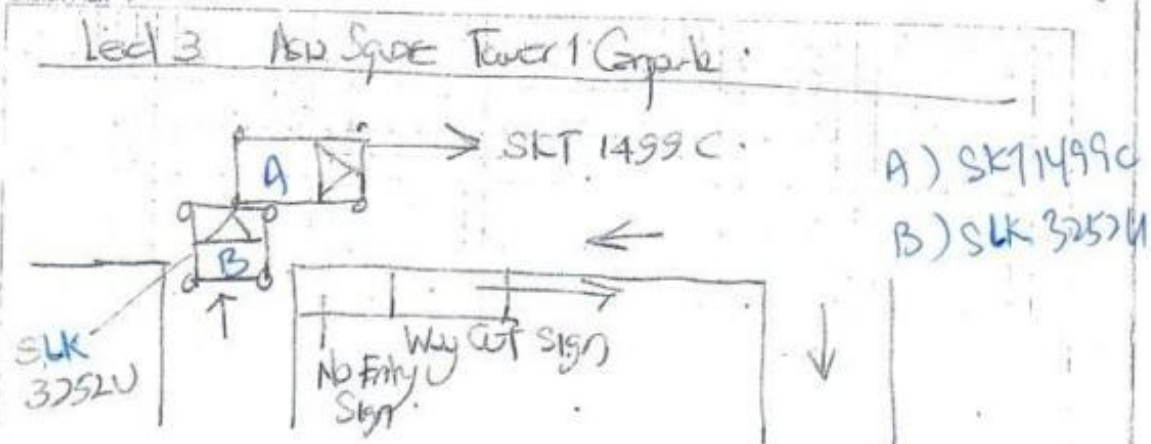 Level 3 Asia Square Tower 1 Carpark.
SKT 1499 C.
A
A) SKT1499C
B) SLK 3252U
B
SLK
3252U
Way Out Sign
No Entry
Sign.